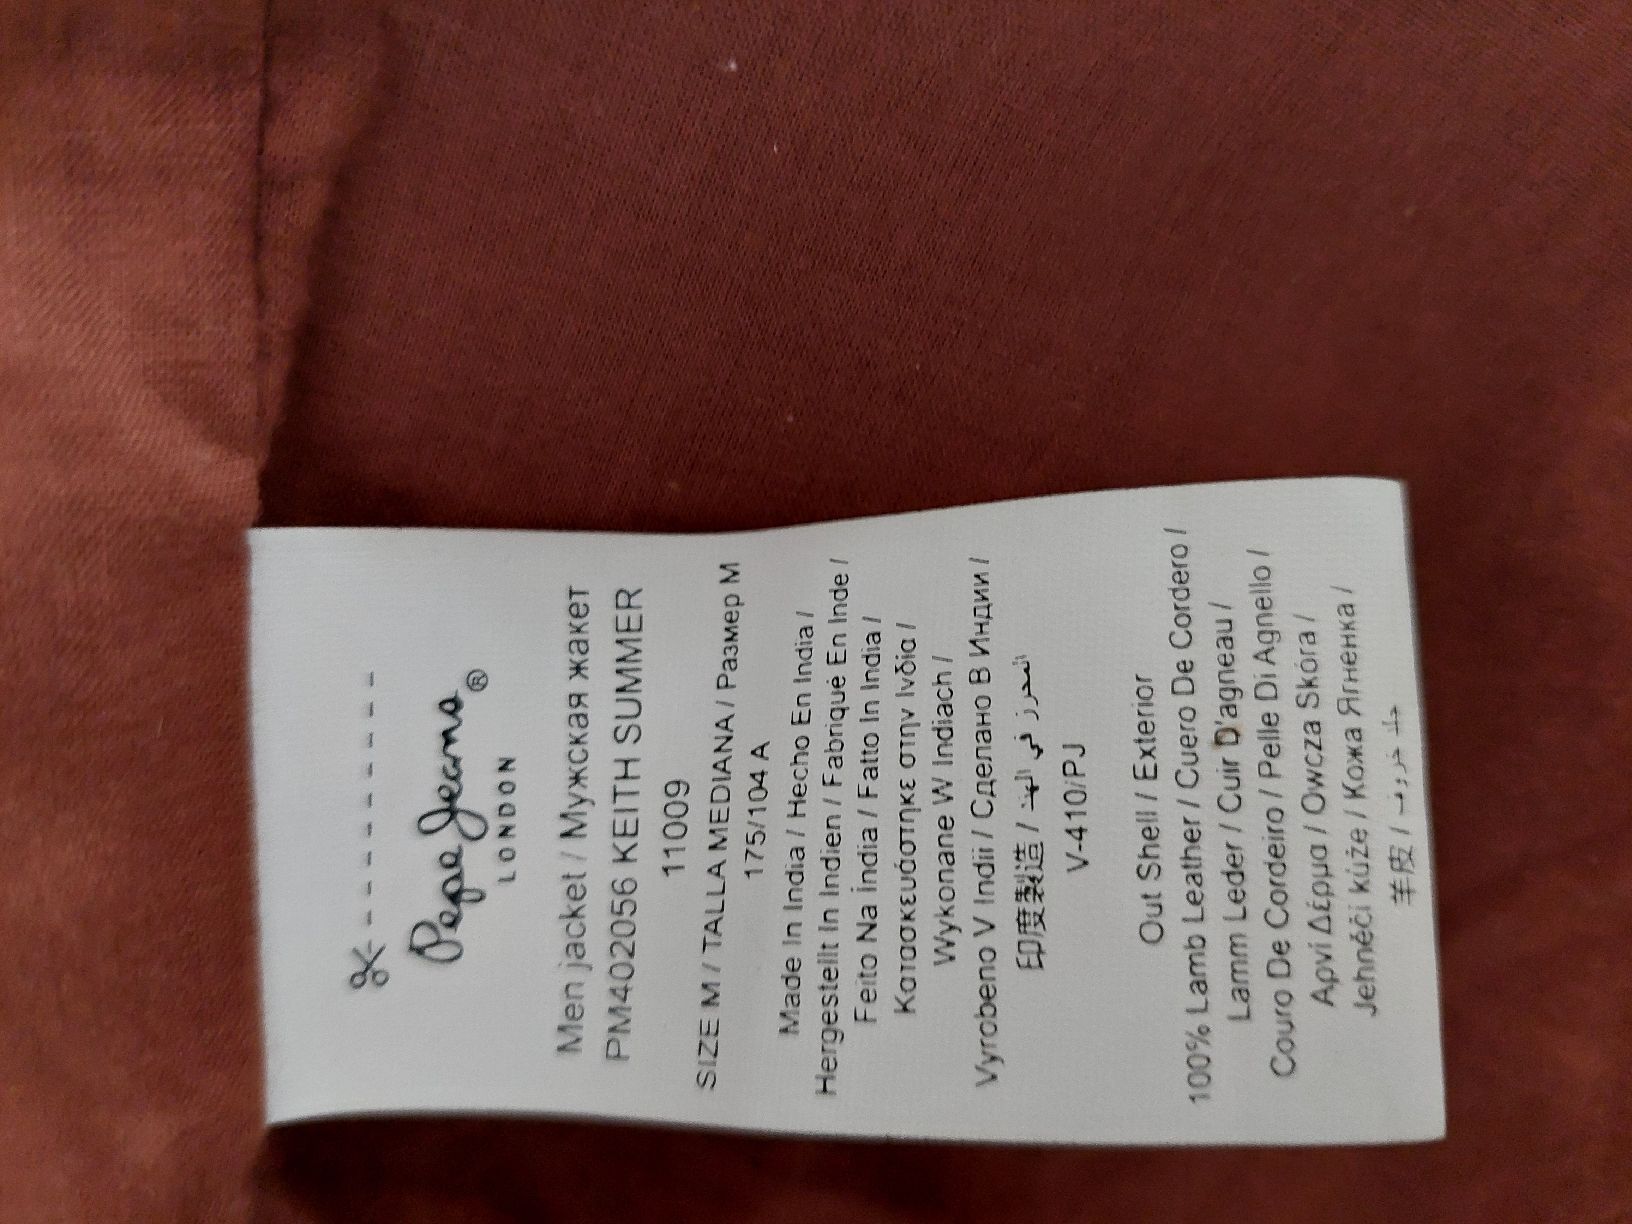 Pepe Jeans ®
LONDON
Men jacket / Мужская жакет
PM402056 KEITH SUMMER
11009
SIZE M / TALLA MEDIANA / Размер M
175/104 A
Made In India / Hecho En India /
Hergestellt In Indien / Fabriqué En Inde /
Feito Na Índia / Fatto In India /
Κατασκευάστηκε στην Ινδία /
Wykonane W Indiach /
Vyrobeno V Indii / Сделано В Индии /
印度製造 / في الهند
V-410/PJ
Out Shell / Exterior
100% Lamb Leather / Cuero De Cordero /
Lamm Leder / Cuir D'agneau /
Couro De Cordeiro / Pelle Di Agnello /
Αρνί Δέρμα / Owcza Skóra /
Jehněčí kůže / Кожа Ягненка /
羊皮 / جلد خروف